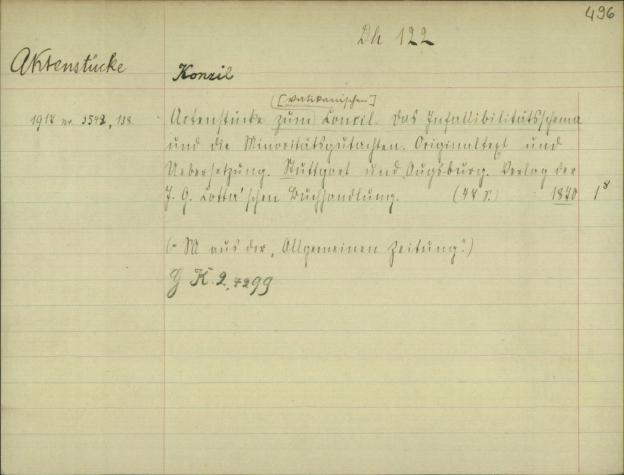 496
Dh 122
Aktenstücke
Konzil
[vatikanischen]
1914 nr. 3542, 138. Actenstücke zum Concil. Das Infallibilitätsschema
und die Minoritätsgutachten. Originaltext und
Uebersetzung. Stuttgart und Augsburg. Verlag der
J. G. Cotta'schen Buchhandlung. (44 S.) 1870 1 8
(= aus der „Allgemeinen Zeitung".)
G K. 2, 7299